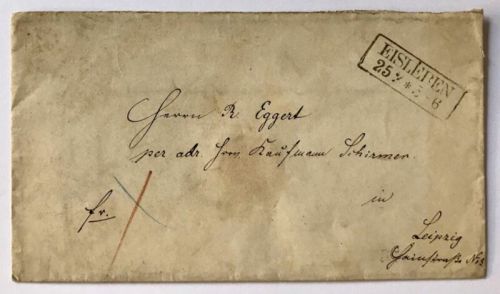 EISLEBEN
25 7 * 5-6
Herrn R. Eggert
per adr. Hrrn Kaufmann Schirmer.
fr.
in
Leipzig
Hainstraße No